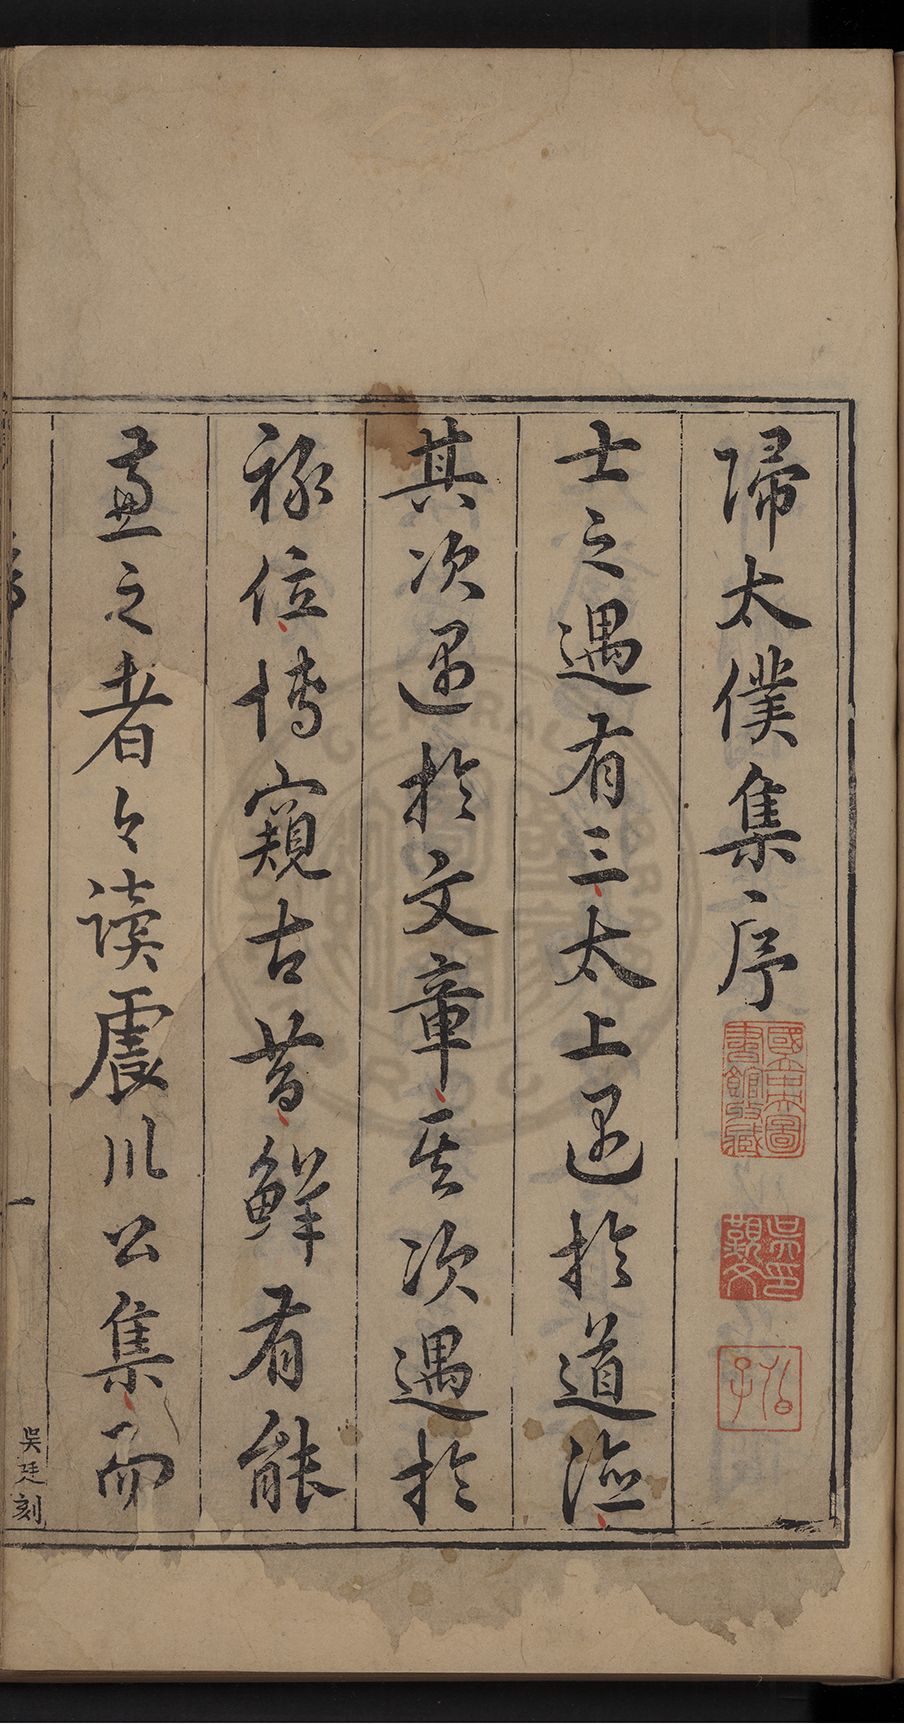 歸太僕集序
國立中央圖書館收藏
士之遇有三太上遇於道德
其次遇於文章其次遇於
祿位博窺古昔鮮有能
兼之者今讀震川公集而
一
吳廷刻